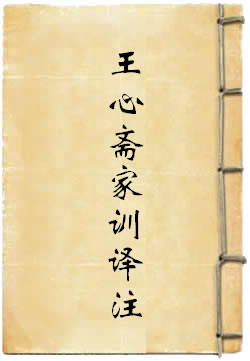 王心斋家训译注